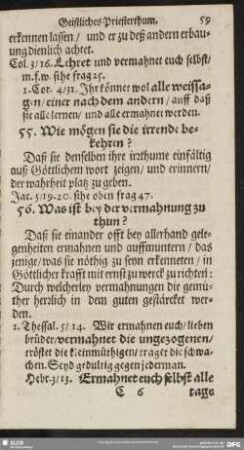 Geistliches Priesterthum. 59
erkennen lassen / und er zu deß andern erbau-
ung dienlich achtet.
Col. 3/16. Lehret und vermahnet euch selbst/
m.f.w. sihe frag 25.
1. Cor. 4/31. Ihr könnet wol alle weissa-
gen/ einer nach dem andern/ auff daß
sie alle lernen/ und alle ermahnet werden.
55. Wie mögen sie die irrende be-
kehren?
Daß sie denselben ihre irzthume einfältig
auß Göttlichem wort zeigen/ und erinnern/
der wahrheit platz zu geben.
Jac. 5/19.20. sihe oben frag 47.
56. Was ist bey der vermahnung zu
thun?
Daß sie einander offt bey allerhand gele-
genheiten ermahnen und auffmuntern/ das
jenige/ was sie nöthig zu seyn erkenneten/ in
Göttlicher krafft mit ernst zu werck zu richten:
Durch welcherley vermahnungen die gemü-
ther hertzlich in dem guten gestärcket wer-
den.
1. Thessal. 5/14. Wir ermahnen euch/ lieben
brüder/ vermahnet die ungezogenen/
tröstet die kleinmüthigen/ traget die schwa-
chen. Seyd gedultig gegen jederman.
Hebr. 3/13. Ermahnet euch selbst alle
C 6 tage
SLUB
DFG